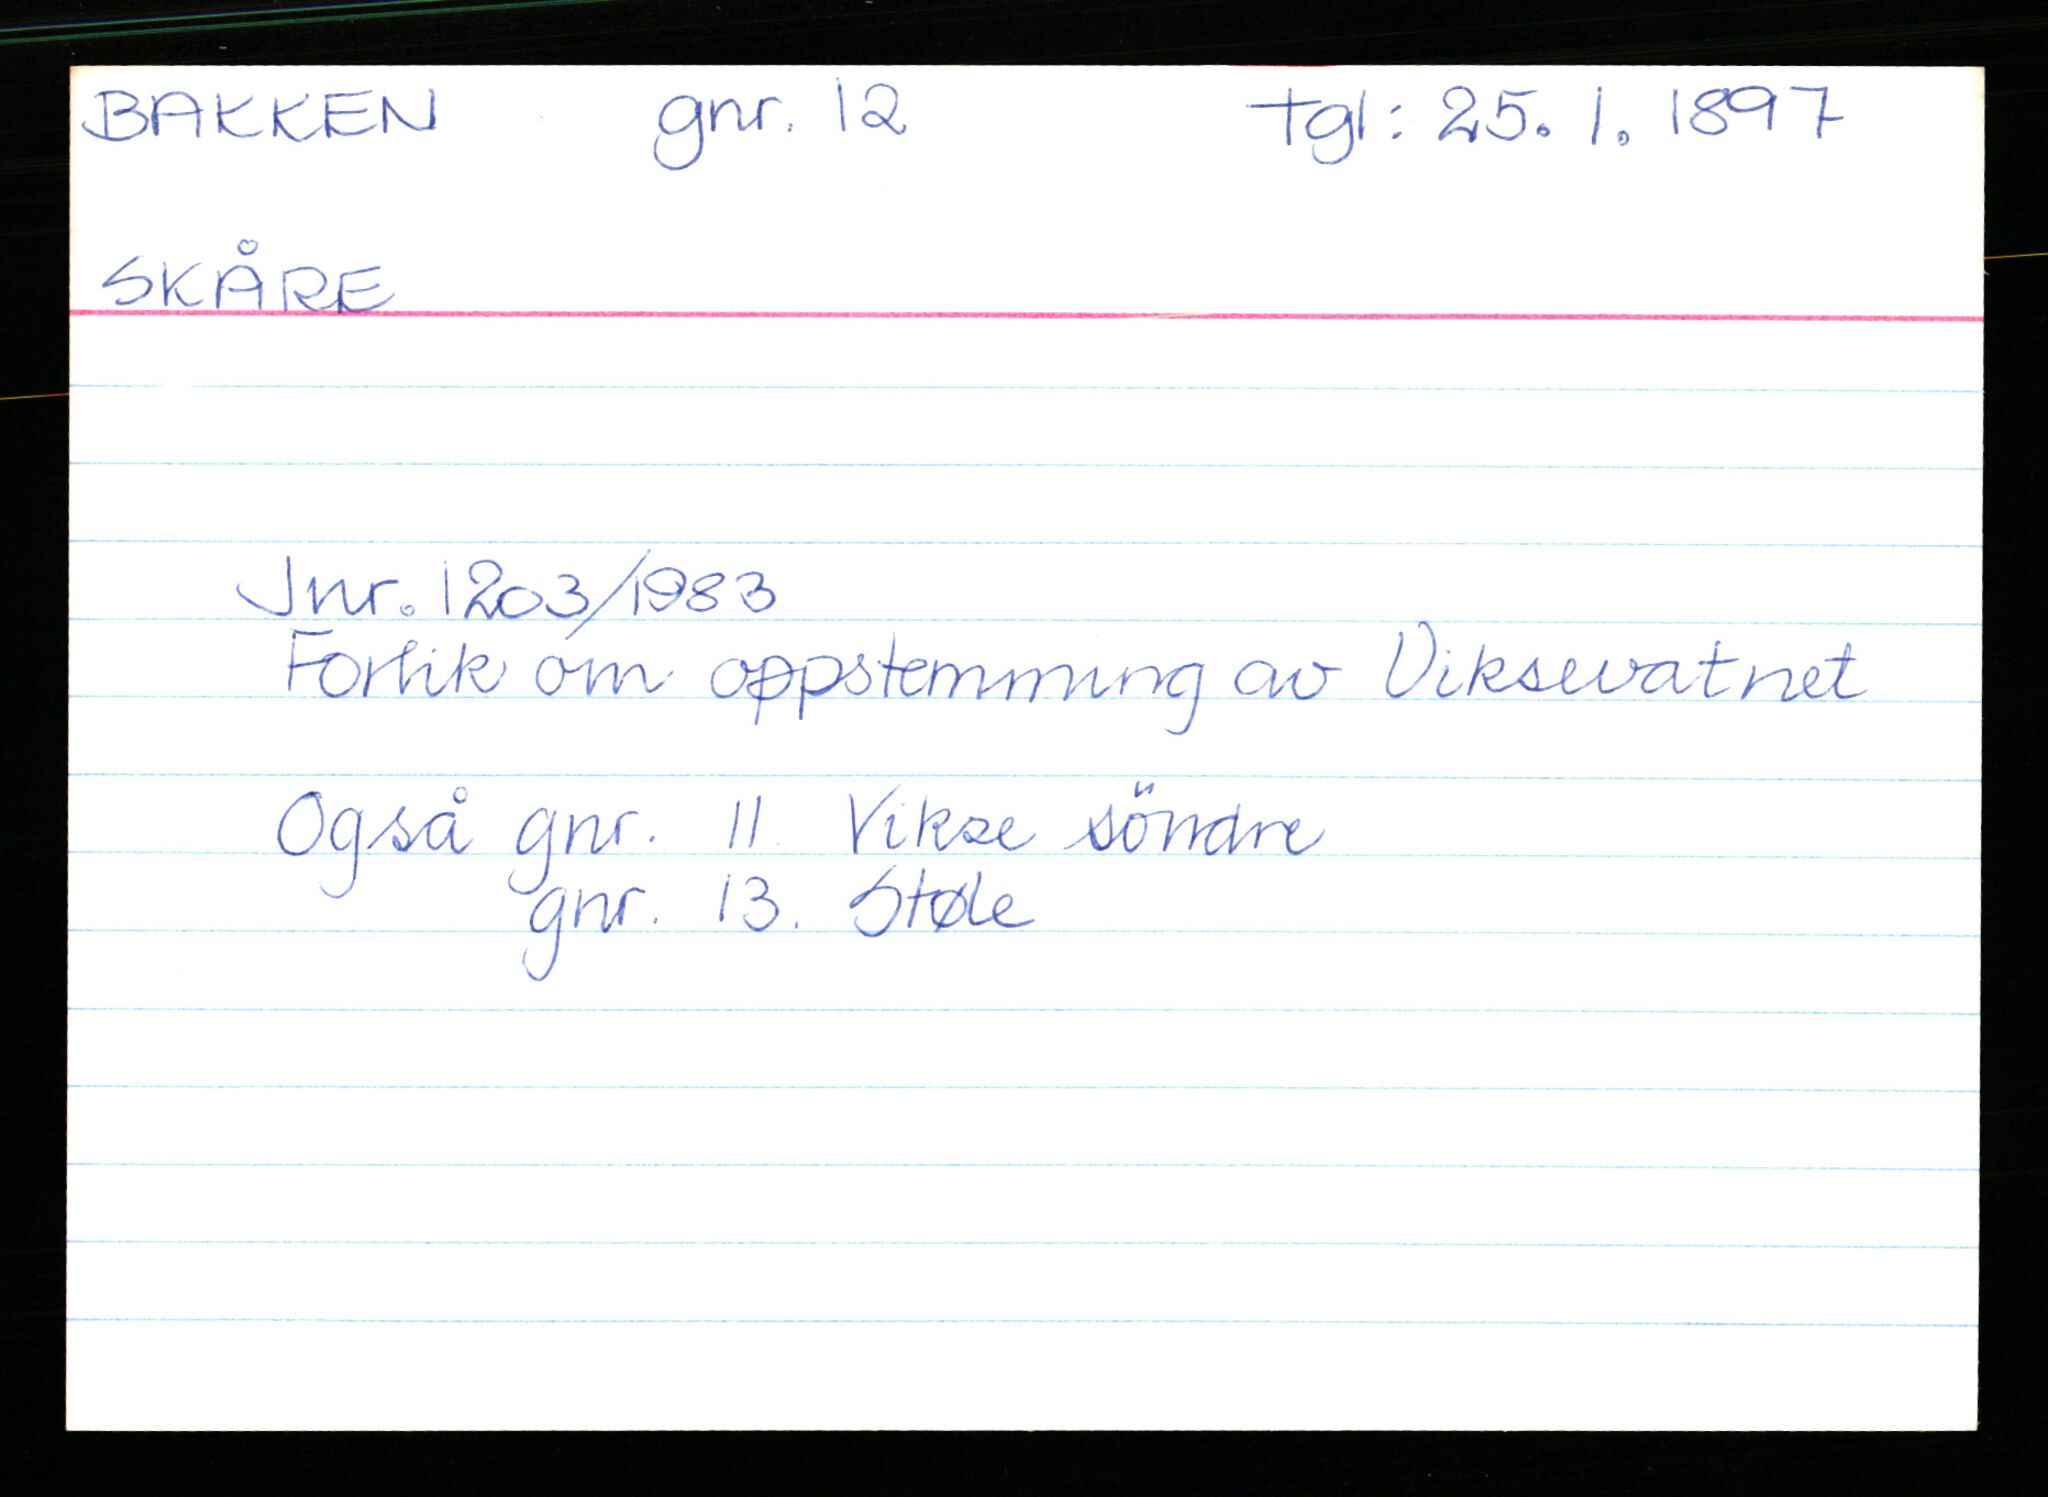 BAKKEN gnr. 12 tgl: 25. 1. 1897
SKÅRE
Jnr. 1203/1983
Forlik om oppstemming av Viksevatnet
Også gnr. 11 Vikse söndre
gnr. 13. Støle